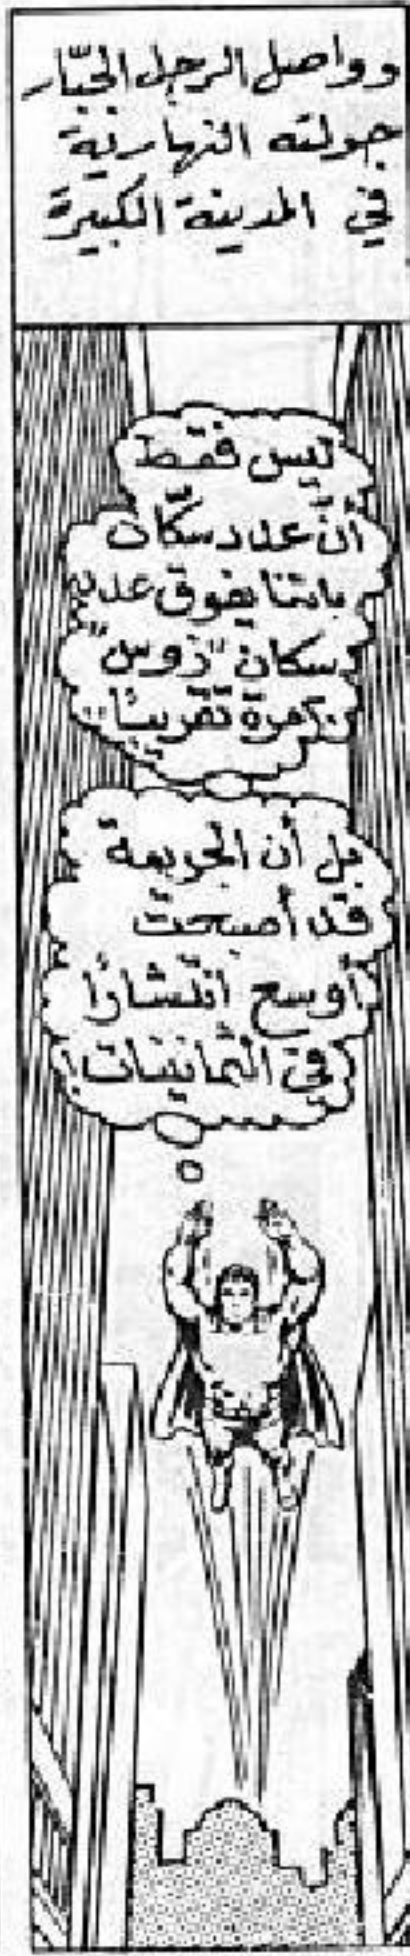 وواصل الرجل الجبّار
جولته النهارية
في المدينة الكبيرة
ليس فقط
أنّ عدد سكّان
بلدتنا يفوق عدد
سكان "زوس"
مرة تقريبًا
بل أن الجريمة
قد أصبحت
أوسع انتشارًا
في الثمانينات!